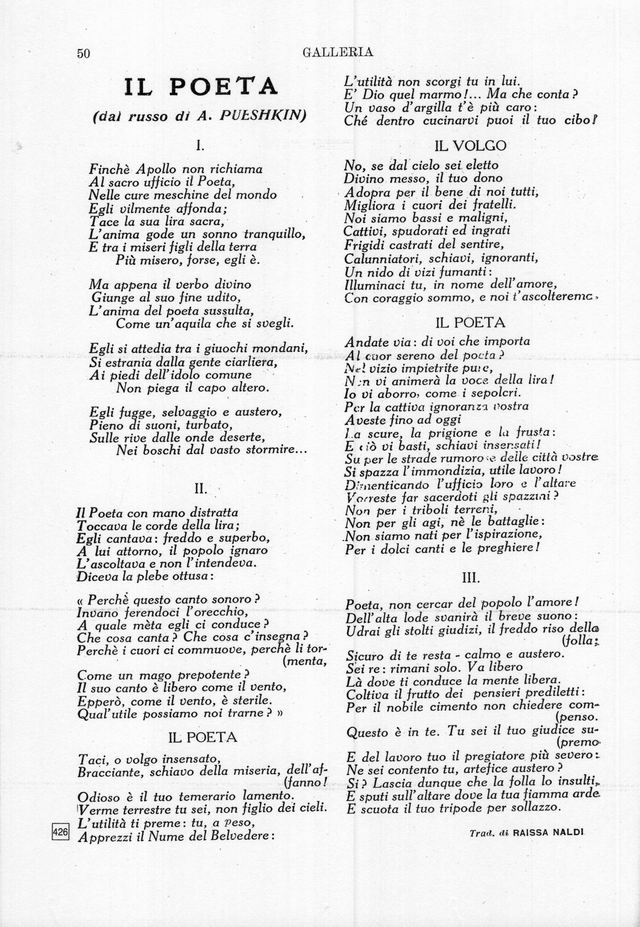 50
GALLERIA
IL POETA
(dal russo di A. PUŁSHKIN)
I.
Finchè Apollo non richiama
Al sacro ufficio il Poeta,
Nelle cure meschine del mondo
Egli vilmente affonda;
Tace la sua lira sacra,
L'anima gode un sonno tranquillo,
E tra i miseri figli della terra
Più misero, forse, egli è.
Ma appena il verbo divino
Giunge al suo fine udito,
L'anima del poeta sussulta,
Come un'aquila che si svegli.
Egli si attedia tra i giuochi mondani,
Si estrania dalla gente ciarliera,
Ai piedi dell'idolo comune
Non piega il capo altero.
Egli fugge, selvaggio e austero,
Pieno di suoni, turbato,
Sulle rive dalle onde deserte,
Nei boschi dal vasto stormire...
II.
Il Poeta con mano distratta
Toccava le corde della lira;
Egli cantava: freddo e superbo,
A lui attorno, il popolo ignaro
L'ascoltava e non l'intendeva.
Diceva la plebe ottusa:
« Perchè questo canto sonoro?
Invano ferendoci l'orecchio,
A quale mèta egli ci conduce?
Che cosa canta? Che cosa c'insegna?
Perchè i cuori ci commuove, perchè li tor-
(menta,
Come un mago prepotente?
Il suo canto è libero come il vento,
Epperò, come il vento, è sterile.
Qual'utile possiamo noi trarne? »
IL POETA
Taci, o volgo insensato,
Bracciante, schiavo della miseria, dell'af-
(fanno!
Odioso è il tuo temerario lamento.
Verme terrestre tu sei, non figlio dei cieli.
L'utilità ti preme: tu, a peso,
Apprezzi il Nume del Belvedere:
426
L'utilità non scorgi tu in lui.
E' Dio quel marmo!... Ma che conta?
Un vaso d'argilla t'è più caro:
Ché dentro cucinarvi puoi il tuo cibo!
IL VOLGO
No, se dal cielo sei eletto
Divino messo, il tuo dono
Adopra per il bene di noi tutti,
Migliora i cuori dei fratelli.
Noi siamo bassi e maligni,
Cattivi, spudorati ed ingrati
Frigidi castrati del sentire,
Calunniatori, schiavi, ignoranti,
Un nido di vizi fumanti:
Illuminaci tu, in nome dell'amore,
Con coraggio sommo, e noi t'ascolteremo.
IL POETA
Andate via: di voi che importa
Al cuor sereno del poeta?
Nel vizio impietrite pure,
Non vi animerà la voce della lira!
Io vi aborro, come i sepolcri.
Per la cattiva ignoranza vostra
Aveste fino ad oggi
La scure, la prigione e la frusta:
E ciò vi basti, schiavi insensati!
Su per le strade rumorose delle città vostre
Si spazza l'immondizia, utile lavoro!
Dimenticando l'ufficio loro e l'altare
Vorreste far sacerdoti gli spazzini?
Non per i triboli terreni,
Non per gli agi, nè le battaglie:
Non siamo nati per l'ispirazione,
Per i dolci canti e le preghiere!
III.
Poeta, non cercar del popolo l'amore!
Dell'alta lode svanirà il breve suono:
Udrai gli stolti giudizi, il freddo riso della
(folla;
Sicuro di te resta - calmo e austero.
Sei re: rimani solo. Va libero
Là dove ti conduce la mente libera.
Coltiva il frutto dei pensieri prediletti:
Per il nobile cimento non chiedere com-
(penso.
Questo è in te. Tu sei il tuo giudice su-
(premo
E del lavoro tuo il pregiatore più severo:
Ne sei contento tu, artefice austero?
Si? Lascia dunque che la folla lo insulti,
E sputi sull'altare dove la tua fiamma arde
E scuota il tuo tripode per sollazzo.
Trad. di RAISSA NALDI